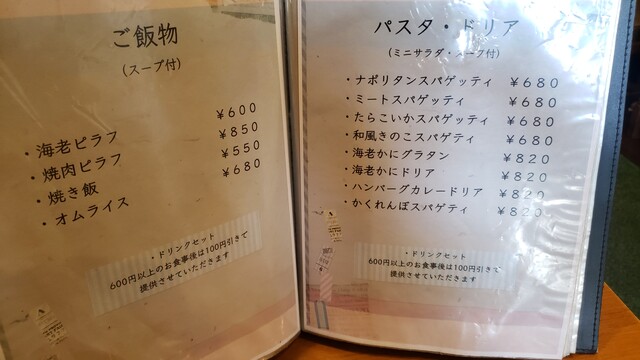 ご飯物
（スープ付）
・海老ピラフ ￥600
・焼肉ピラフ ￥850
・焼き飯 ￥550
・オムライス ￥680
・ドリンクセット
600円以上のお食事後は100円引きで
提供させていただきます
パスタ・ドリア
（ミニサラダ・スープ付）
・ナポリタンスパゲッティ ￥680
・ミートスパゲッティ ￥680
・たらこいかスパゲッティ ￥680
・和風きのこスパゲッティ ￥680
・海老かにグラタン ￥820
・海老かにドリア ￥820
・ハンバーグカレードリア ￥820
・かくれんぼスパゲティ ￥820
・ドリンクセット
600円以上のお食事後は100円引きで
提供させていただきます